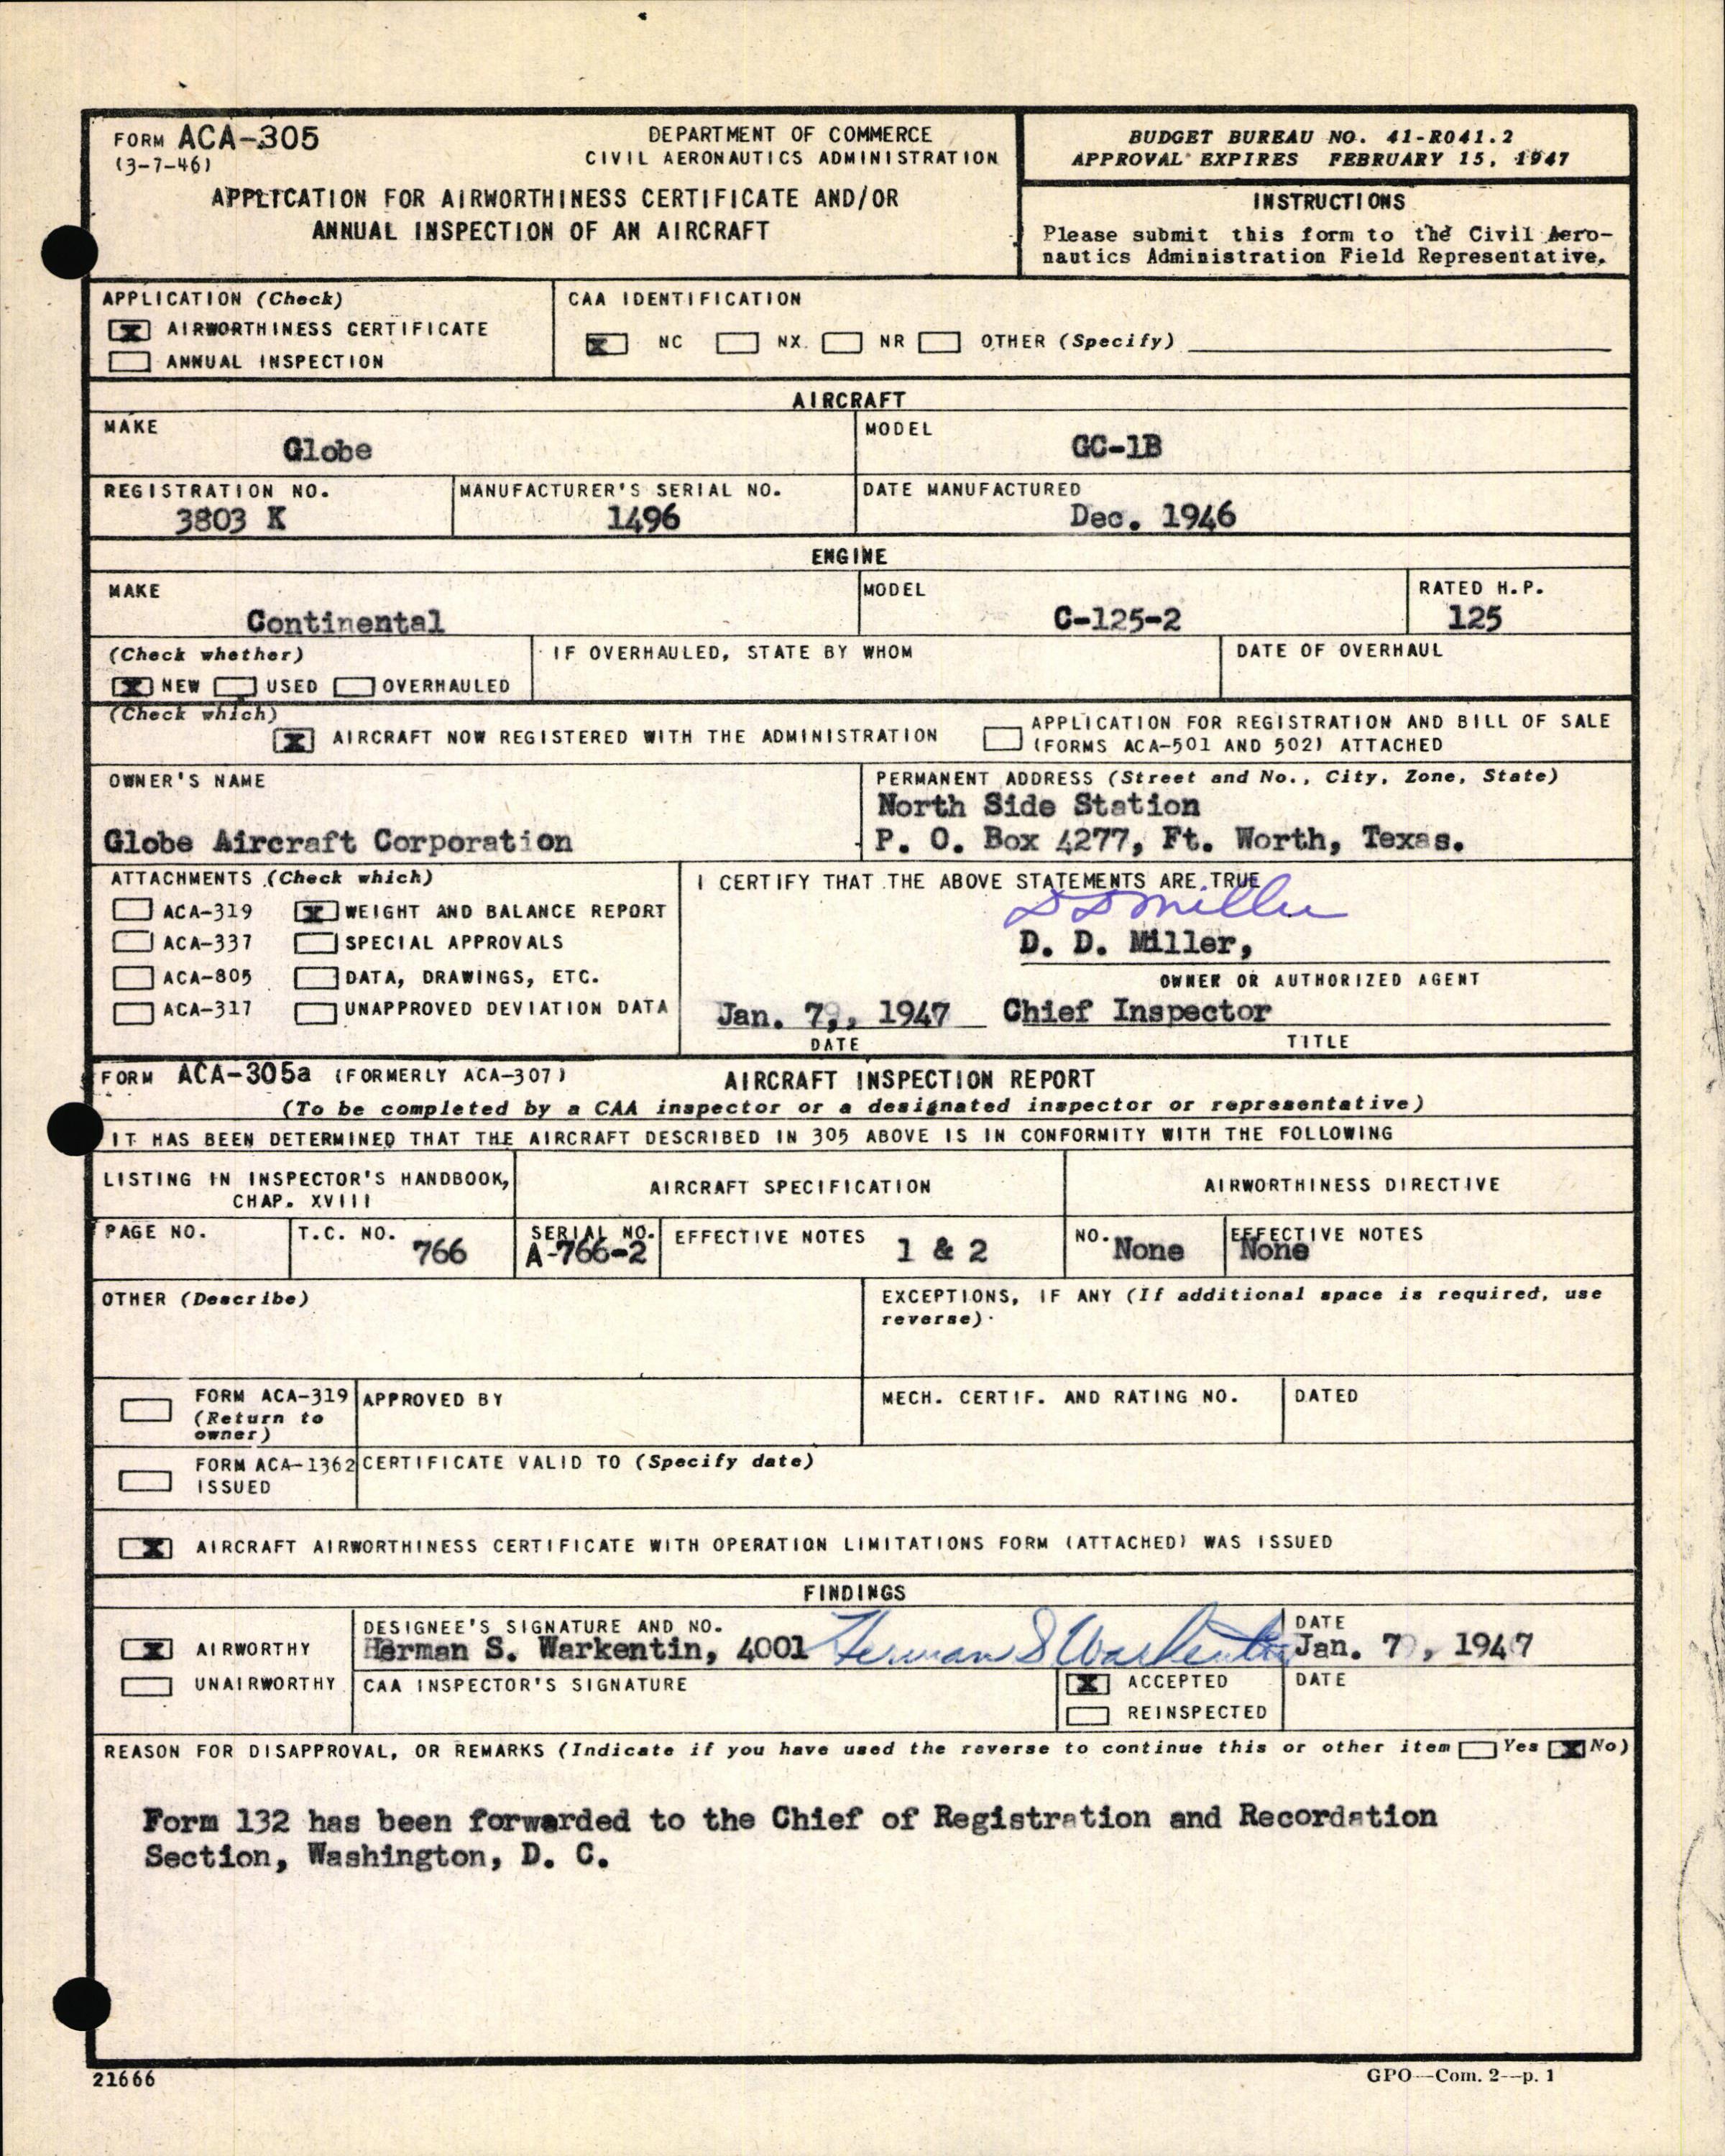 FORM ACA-305
(3-7-46)
DEPARTMENT OF COMMERCE
CIVIL AERONAUTICS ADMINISTRATION
APPLICATION FOR AIRWORTHINESS CERTIFICATE AND/OR
ANNUAL INSPECTION OF AN AIRCRAFT
BUDGET BUREAU NO. 41-R041.2
APPROVAL EXPIRES FEBRUARY 15, 1947
INSTRUCTIONS
Please submit this form to the Civil Aero-
nautics Administration Field Representative.
APPLICATION (Check)
X AIRWORTHINESS CERTIFICATE
ANNUAL INSPECTION
CAA IDENTIFICATION
X NC NX NR OTHER (Specify)
AIRCRAFT
MAKE
Globe
MODEL
GC-1B
REGISTRATION NO.
3803 K
MANUFACTURER'S SERIAL NO.
1496
DATE MANUFACTURED
Dec. 1946
ENGINE
MAKE
Continental
MODEL
C-125-2
RATED H.P.
125
(Check whether)
X NEW USED OVERHAULED
IF OVERHAULED, STATE BY WHOM
DATE OF OVERHAUL
(Check which)
X AIRCRAFT NOW REGISTERED WITH THE ADMINISTRATION
APPLICATION FOR REGISTRATION AND BILL OF SALE
(FORMS ACA-501 AND 502) ATTACHED
OWNER'S NAME
Globe Aircraft Corporation
PERMANENT ADDRESS (Street and No., City, Zone, State)
North Side Station
P. O. Box 4277, Ft. Worth, Texas.
ATTACHMENTS (Check which)
ACA-319 X WEIGHT AND BALANCE REPORT
ACA-337 SPECIAL APPROVALS
ACA-805 DATA, DRAWINGS, ETC.
ACA-317 UNAPPROVED DEVIATION DATA
I CERTIFY THAT THE ABOVE STATEMENTS ARE TRUE
D D Miller
D. D. Miller,
OWNER OR AUTHORIZED AGENT
Jan. 7, 1947 Chief Inspector
DATE TITLE
FORM ACA-305a (FORMERLY ACA-307) AIRCRAFT INSPECTION REPORT
(To be completed by a CAA inspector or a designated inspector or representative)
IT HAS BEEN DETERMINED THAT THE AIRCRAFT DESCRIBED IN 305 ABOVE IS IN CONFORMITY WITH THE FOLLOWING
LISTING IN INSPECTOR'S HANDBOOK,
CHAP. XVIII
AIRCRAFT SPECIFICATION
AIRWORTHINESS DIRECTIVE
PAGE NO.
T.C. NO. 766
SERIAL NO.
A-766-2
EFFECTIVE NOTES 1 & 2
NO. None
EFFECTIVE NOTES
None
OTHER (Describe)
EXCEPTIONS, IF ANY (If additional space is required, use
reverse)
FORM ACA-319
(Return to
owner)
APPROVED BY
MECH. CERTIF. AND RATING NO.
DATED
FORM ACA-1362
ISSUED
CERTIFICATE VALID TO (Specify date)
X AIRCRAFT AIRWORTHINESS CERTIFICATE WITH OPERATION LIMITATIONS FORM (ATTACHED) WAS ISSUED
FINDINGS
X AIRWORTHY
UNAIRWORTHY
DESIGNEE'S SIGNATURE AND NO.
Herman S. Warkentin, 4001 Herman S Warkentin
DATE
Jan. 7, 1947
CAA INSPECTOR'S SIGNATURE
X ACCEPTED
REINSPECTED
DATE
REASON FOR DISAPPROVAL, OR REMARKS (Indicate if you have used the reverse to continue this or other item Yes X No)
Form 132 has been forwarded to the Chief of Registration and Recordation
Section, Washington, D. C.
21666
GPO—Com. 2—p. 1